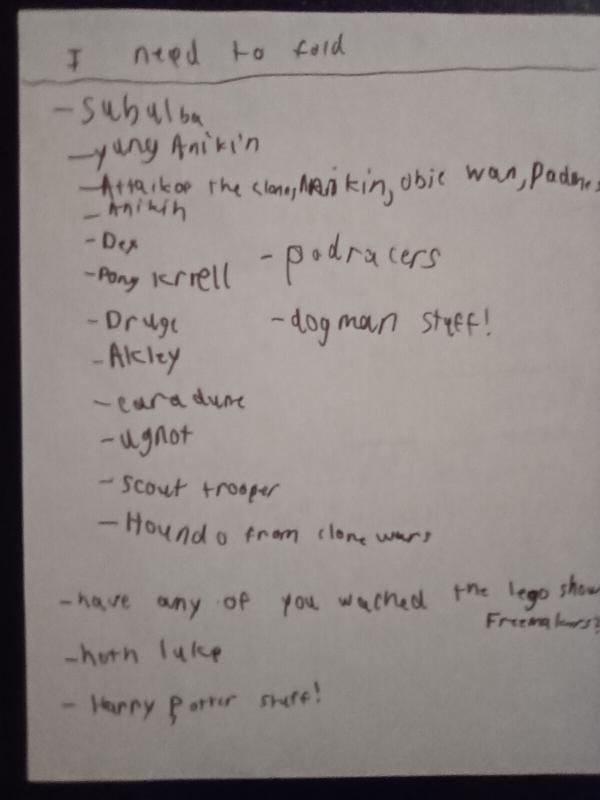 I need to fold
- Subulba
- yung Anikin
- Attack of the clone, Anikin, obie wan, Padme,
- Anikin
- Dex
- podracers
- Pong Krrell
- Druge
- dog man stuff!
- Akley
- cara dune
- ugnot
- scout trooper
- Hound o from clone wars
- have any of you wached the lego show
Freemakers?
- hoth luke
- Harry potter stuff!